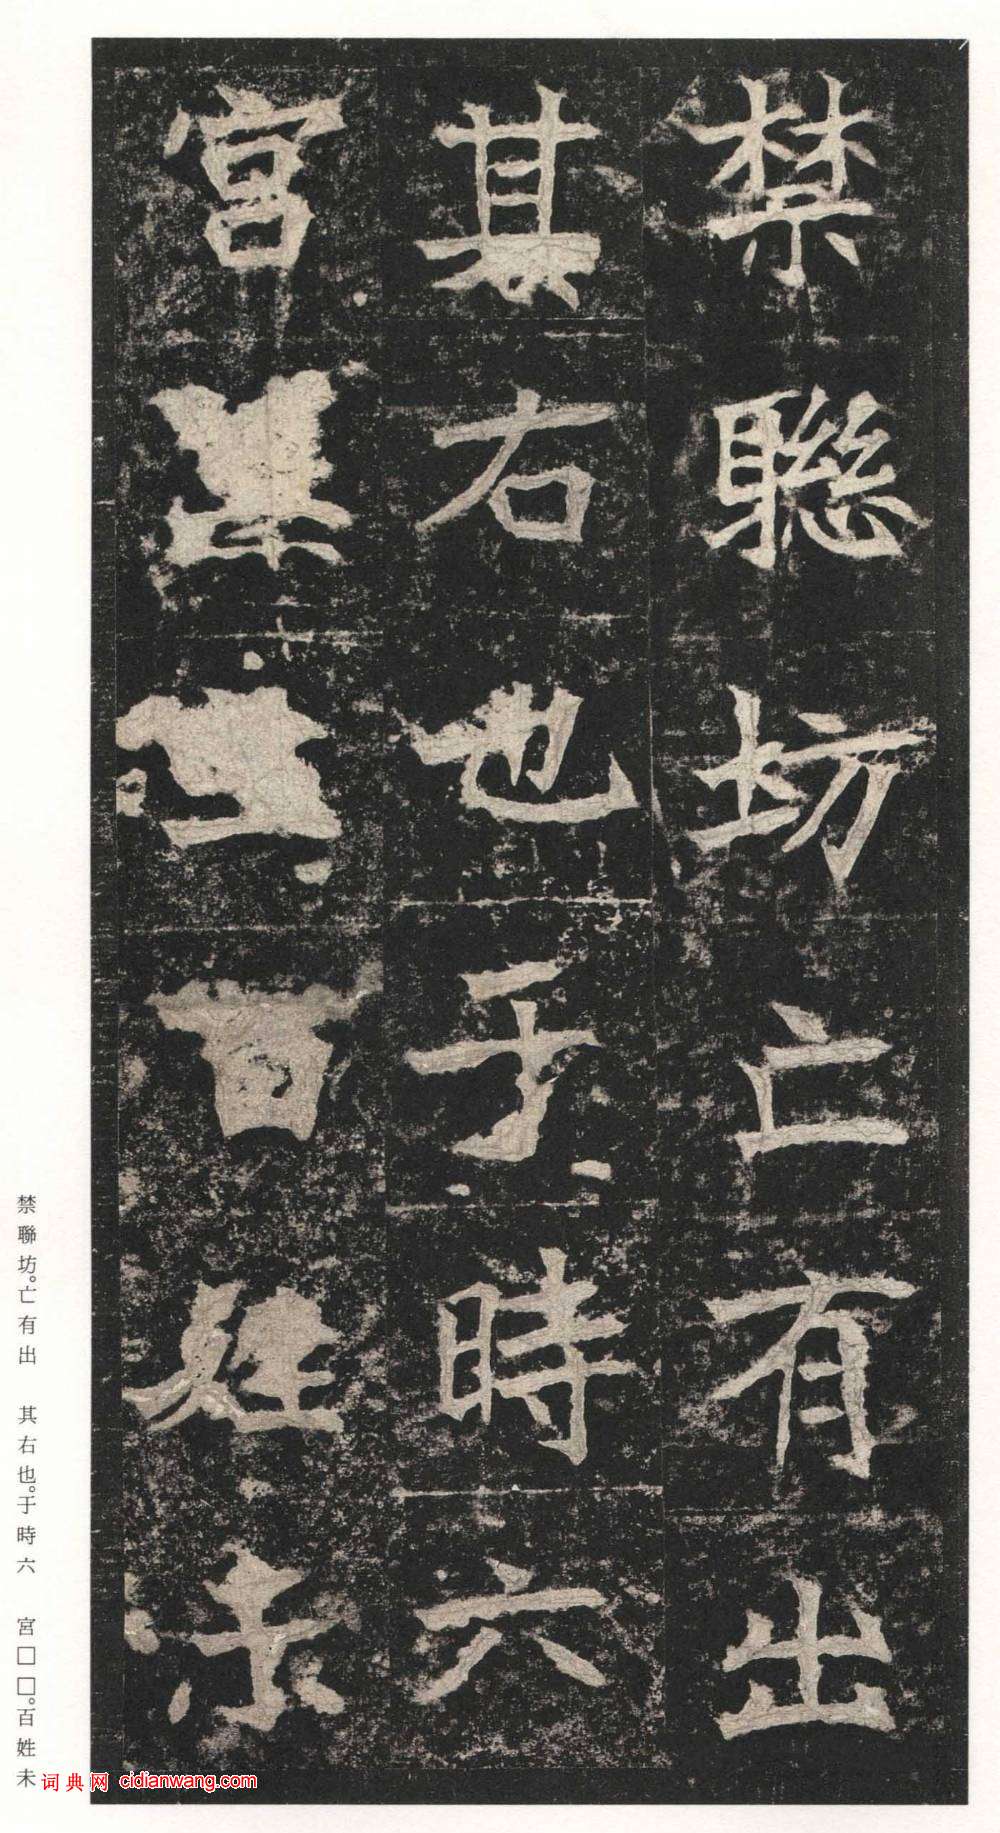 禁聯坊亡有出
其右也于時六
宮百姓未
禁聯坊。亡有出　其右也。于時六　宮□□。百姓未
词典网 cidianwang.com